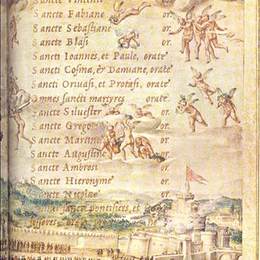 Sancte Vincenti
Sancte Fabiane or.
Sancte Sebastiane or.
Sancte Blasi or.
Sancti Ioannes, et Paule, orate
Sancti Cosma, & Damiane, orate
Sancti Gruasi, et Protasi, orate
Omnes sancti martyres orate
Sancte Siluester or.
Sancte Grego or.
Sancte Martine or.
Sancte Augustine or.
Sancte Ambrosi or.
Sancte Hieronyme or.
Sancte Nicolae or.
sancti pontifices, et